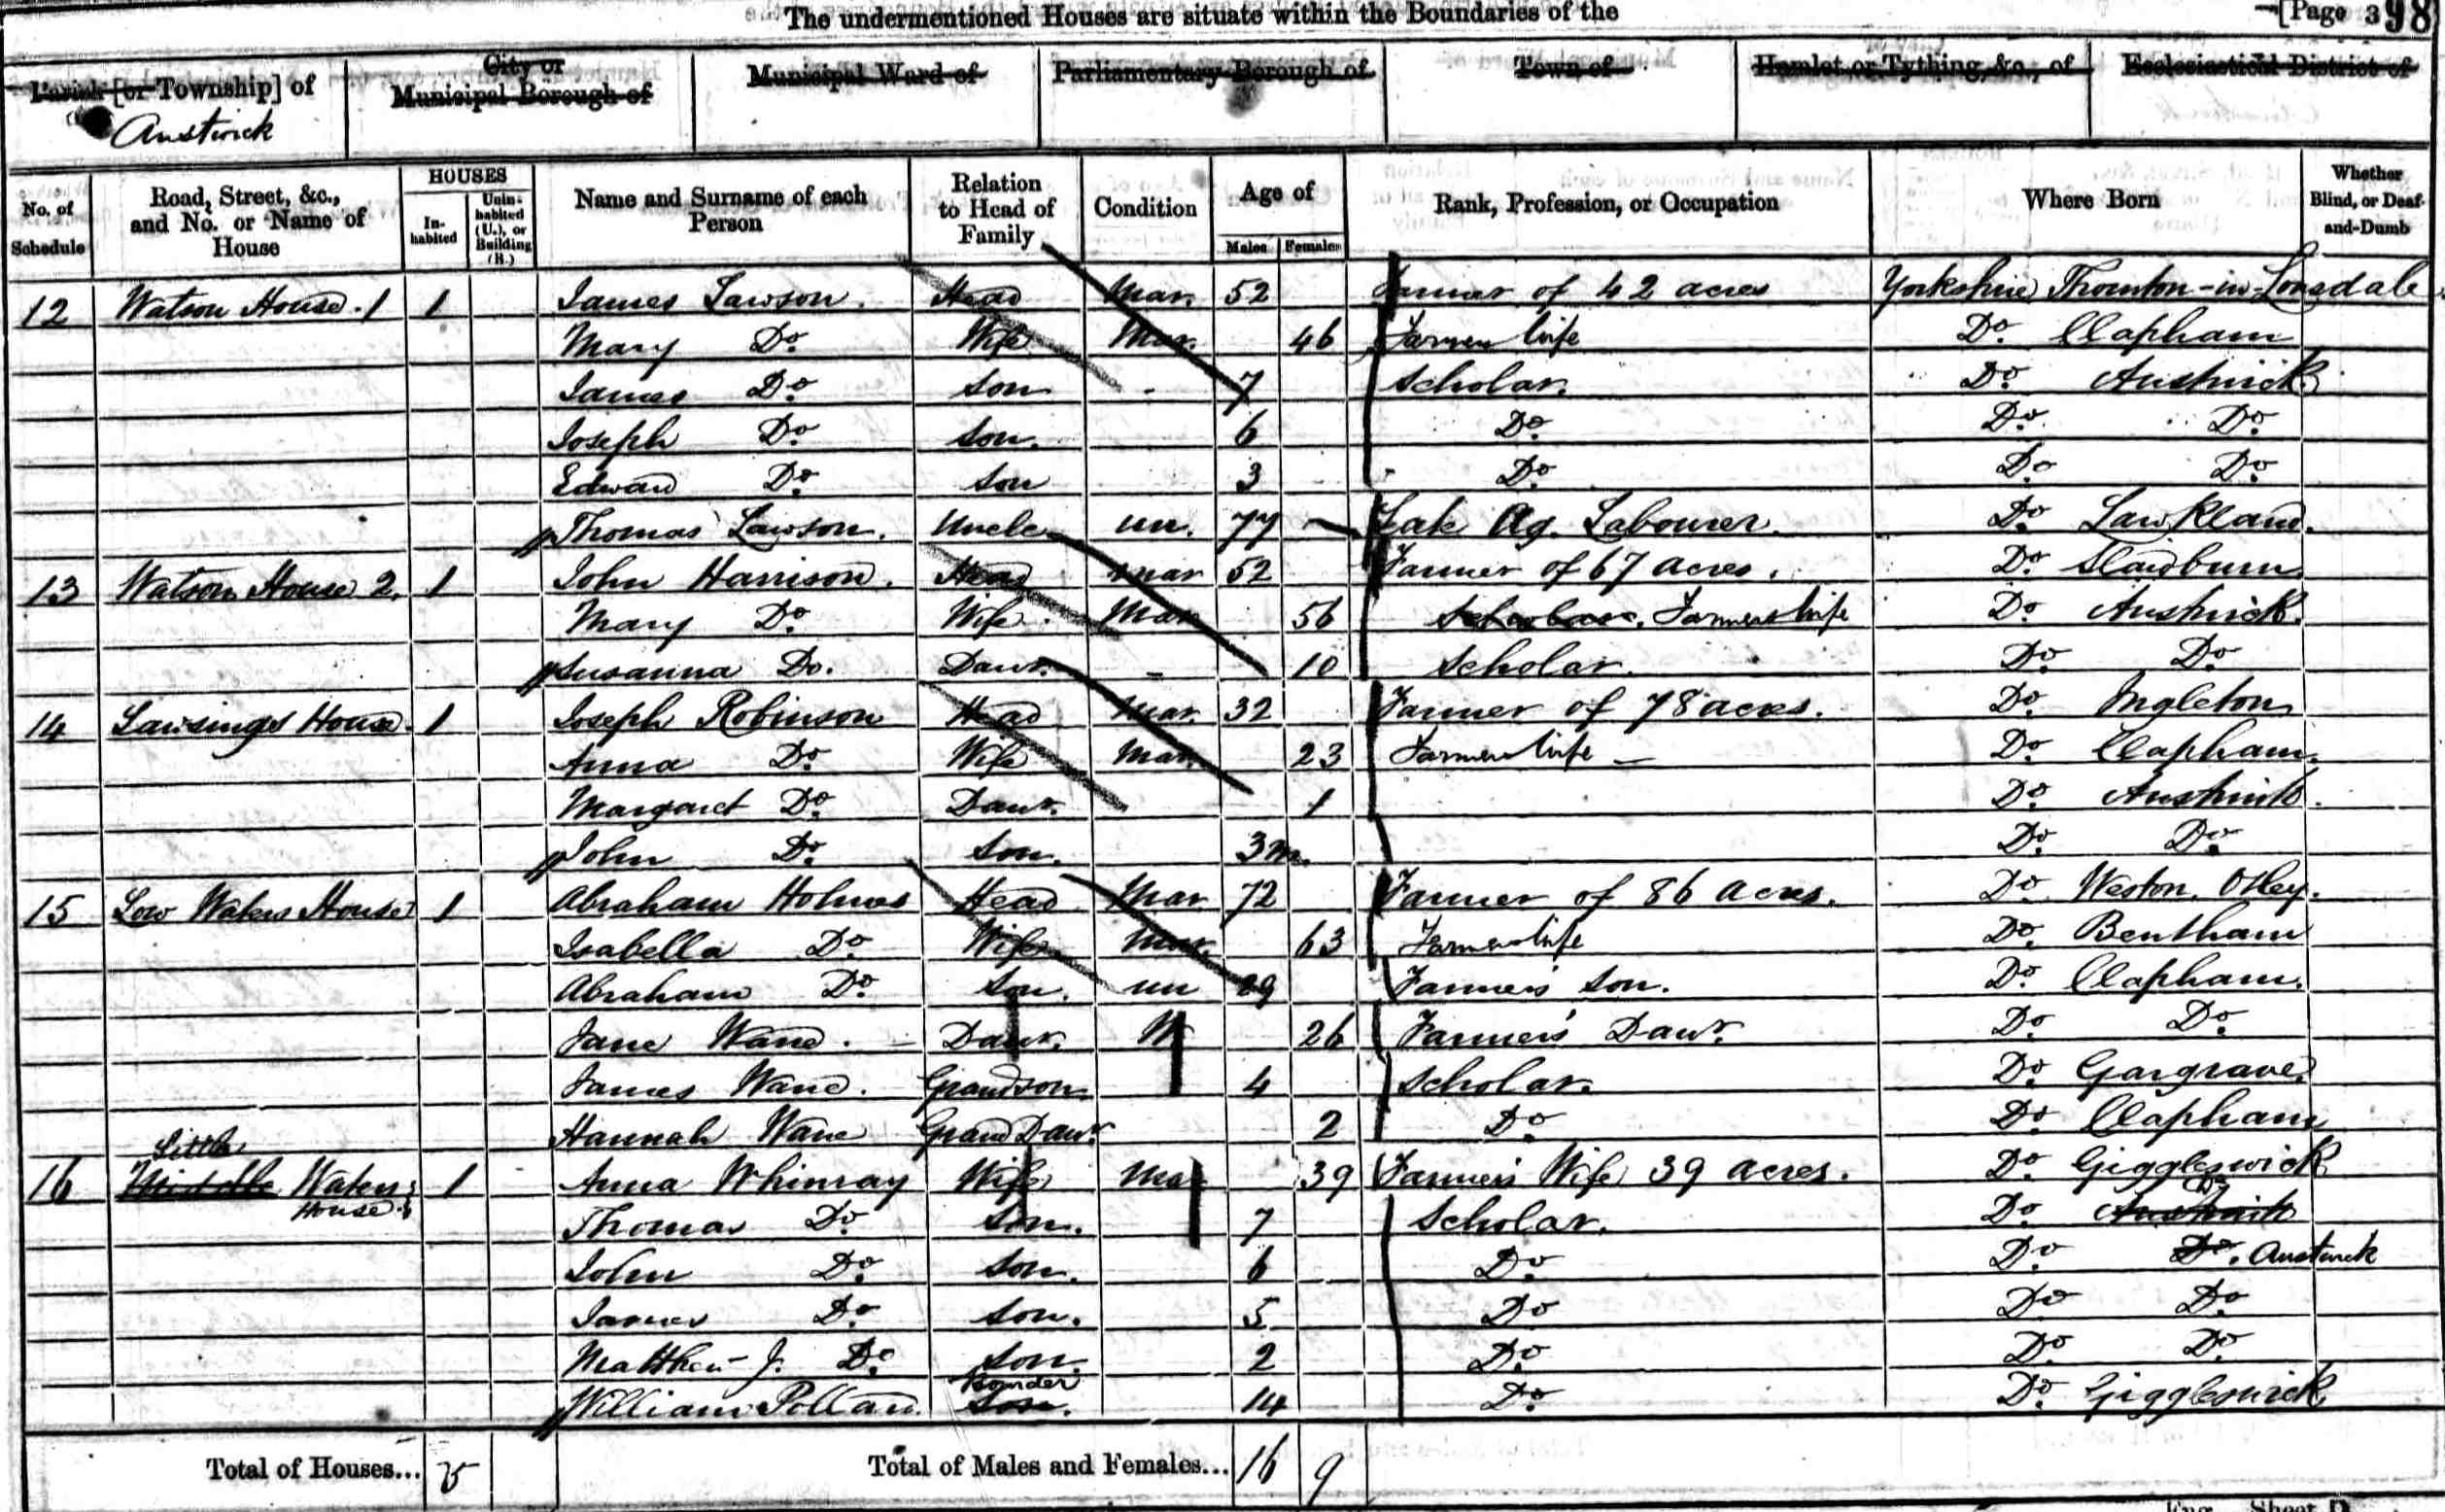 The undermentioned Houses are situate within the Boundaries of the [Page 3 98
Parish [or Township] of City or Municipal Borough of Municipal Ward of Parliamentary Borough of Town of Hamlet or Tything, &c., of Ecclesiastical District of
Austwick
No. of Schedule Road, Street, &c., and No. or Name of House HOUSES In-habited Unin-habited (U.), or Building (B.) Name and Surname of each Person Relation to Head of Family Condition Age of Males Females Rank, Profession, or Occupation Where Born Whether Blind, or Deaf-and-Dumb
12 Watson House. 1 1 James Lawson. Head Mar. 52 Farmer of 42 acres Yorkshire Thornton-in-Lonsdale
Mary Do. Wife Mar. 46 Farmer Wife Do. Clapham
James Do son - 7 Scholar. Do. Austwick
Joseph Do son. 6 Do. Do. Do.
Edward Do. son 3 Do. Do Do.
Thomas Lawson. Uncle un. 77 Late Ag. Labourer. Do. Lawkland.
13 Watson House 2. 1 John Harrison. Head Mar 52 Farmer of 67 acres. Do. Slaidburn
Mary Do. Wife. Mar 56 Scholar. Farmers Wife Do. Austwick.
Susanna Do. Dawr. - 10 Scholar. Do. Do.
14 Lawsings House. 1 Joseph Robinson Head Mar. 32 Farmer of 78 acres. Do. Ingleton
Anna Do. Wife Mar. 23 Farmers Wife — Do. Clapham.
Margaret Do. Dawr. 1 Do. Austwick.
John Do. son. 3m. Do. Do.
15 Low Waters House 1 Abraham Holmes Head Mar 72 Farmer of 86 acres. Do. Weston. Otley.
Isabella Do. Wife Mar. 63 Farmers Wife Do. Bentham
Abraham Do. son. un 29 Farmer's son. Do. Clapham.
Jane Dawr. W 26 Farmer's Dawr. Do. Do.
James Grandson 4 Scholar. Do. Gargrave.
Hannah Grand Dawr 2 Do. Do. Clapham
Little
16 Middle Waters House. 1 Anna Whinray Wife Mar 39 Farmer's Wife 39 acres. Do. Giggleswick
Thomas Do. son. 7 Scholar. Do. Austwick Do
John Do. son. 6 Do. Do. Do. Austwick
James Do. son. 5 Do Do Do.
Matthew J. Do. son. 2 Do. Do. Do.
Boarder
William son. 14 Do. Do. Giggleswick
Total of Houses... 5 Total of Males and Females... 16 9
Eng.—Sheet D.